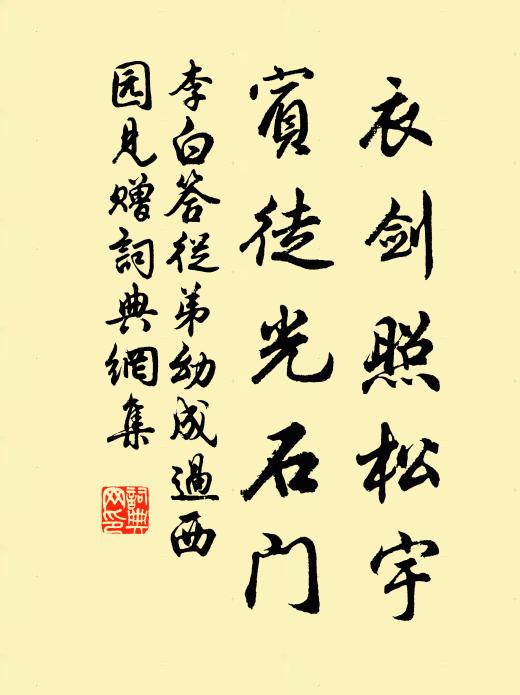 衣剑照松宇
賓徒光石门
李白答從弟幼成過西
园見赠詞典網集
詞典网印